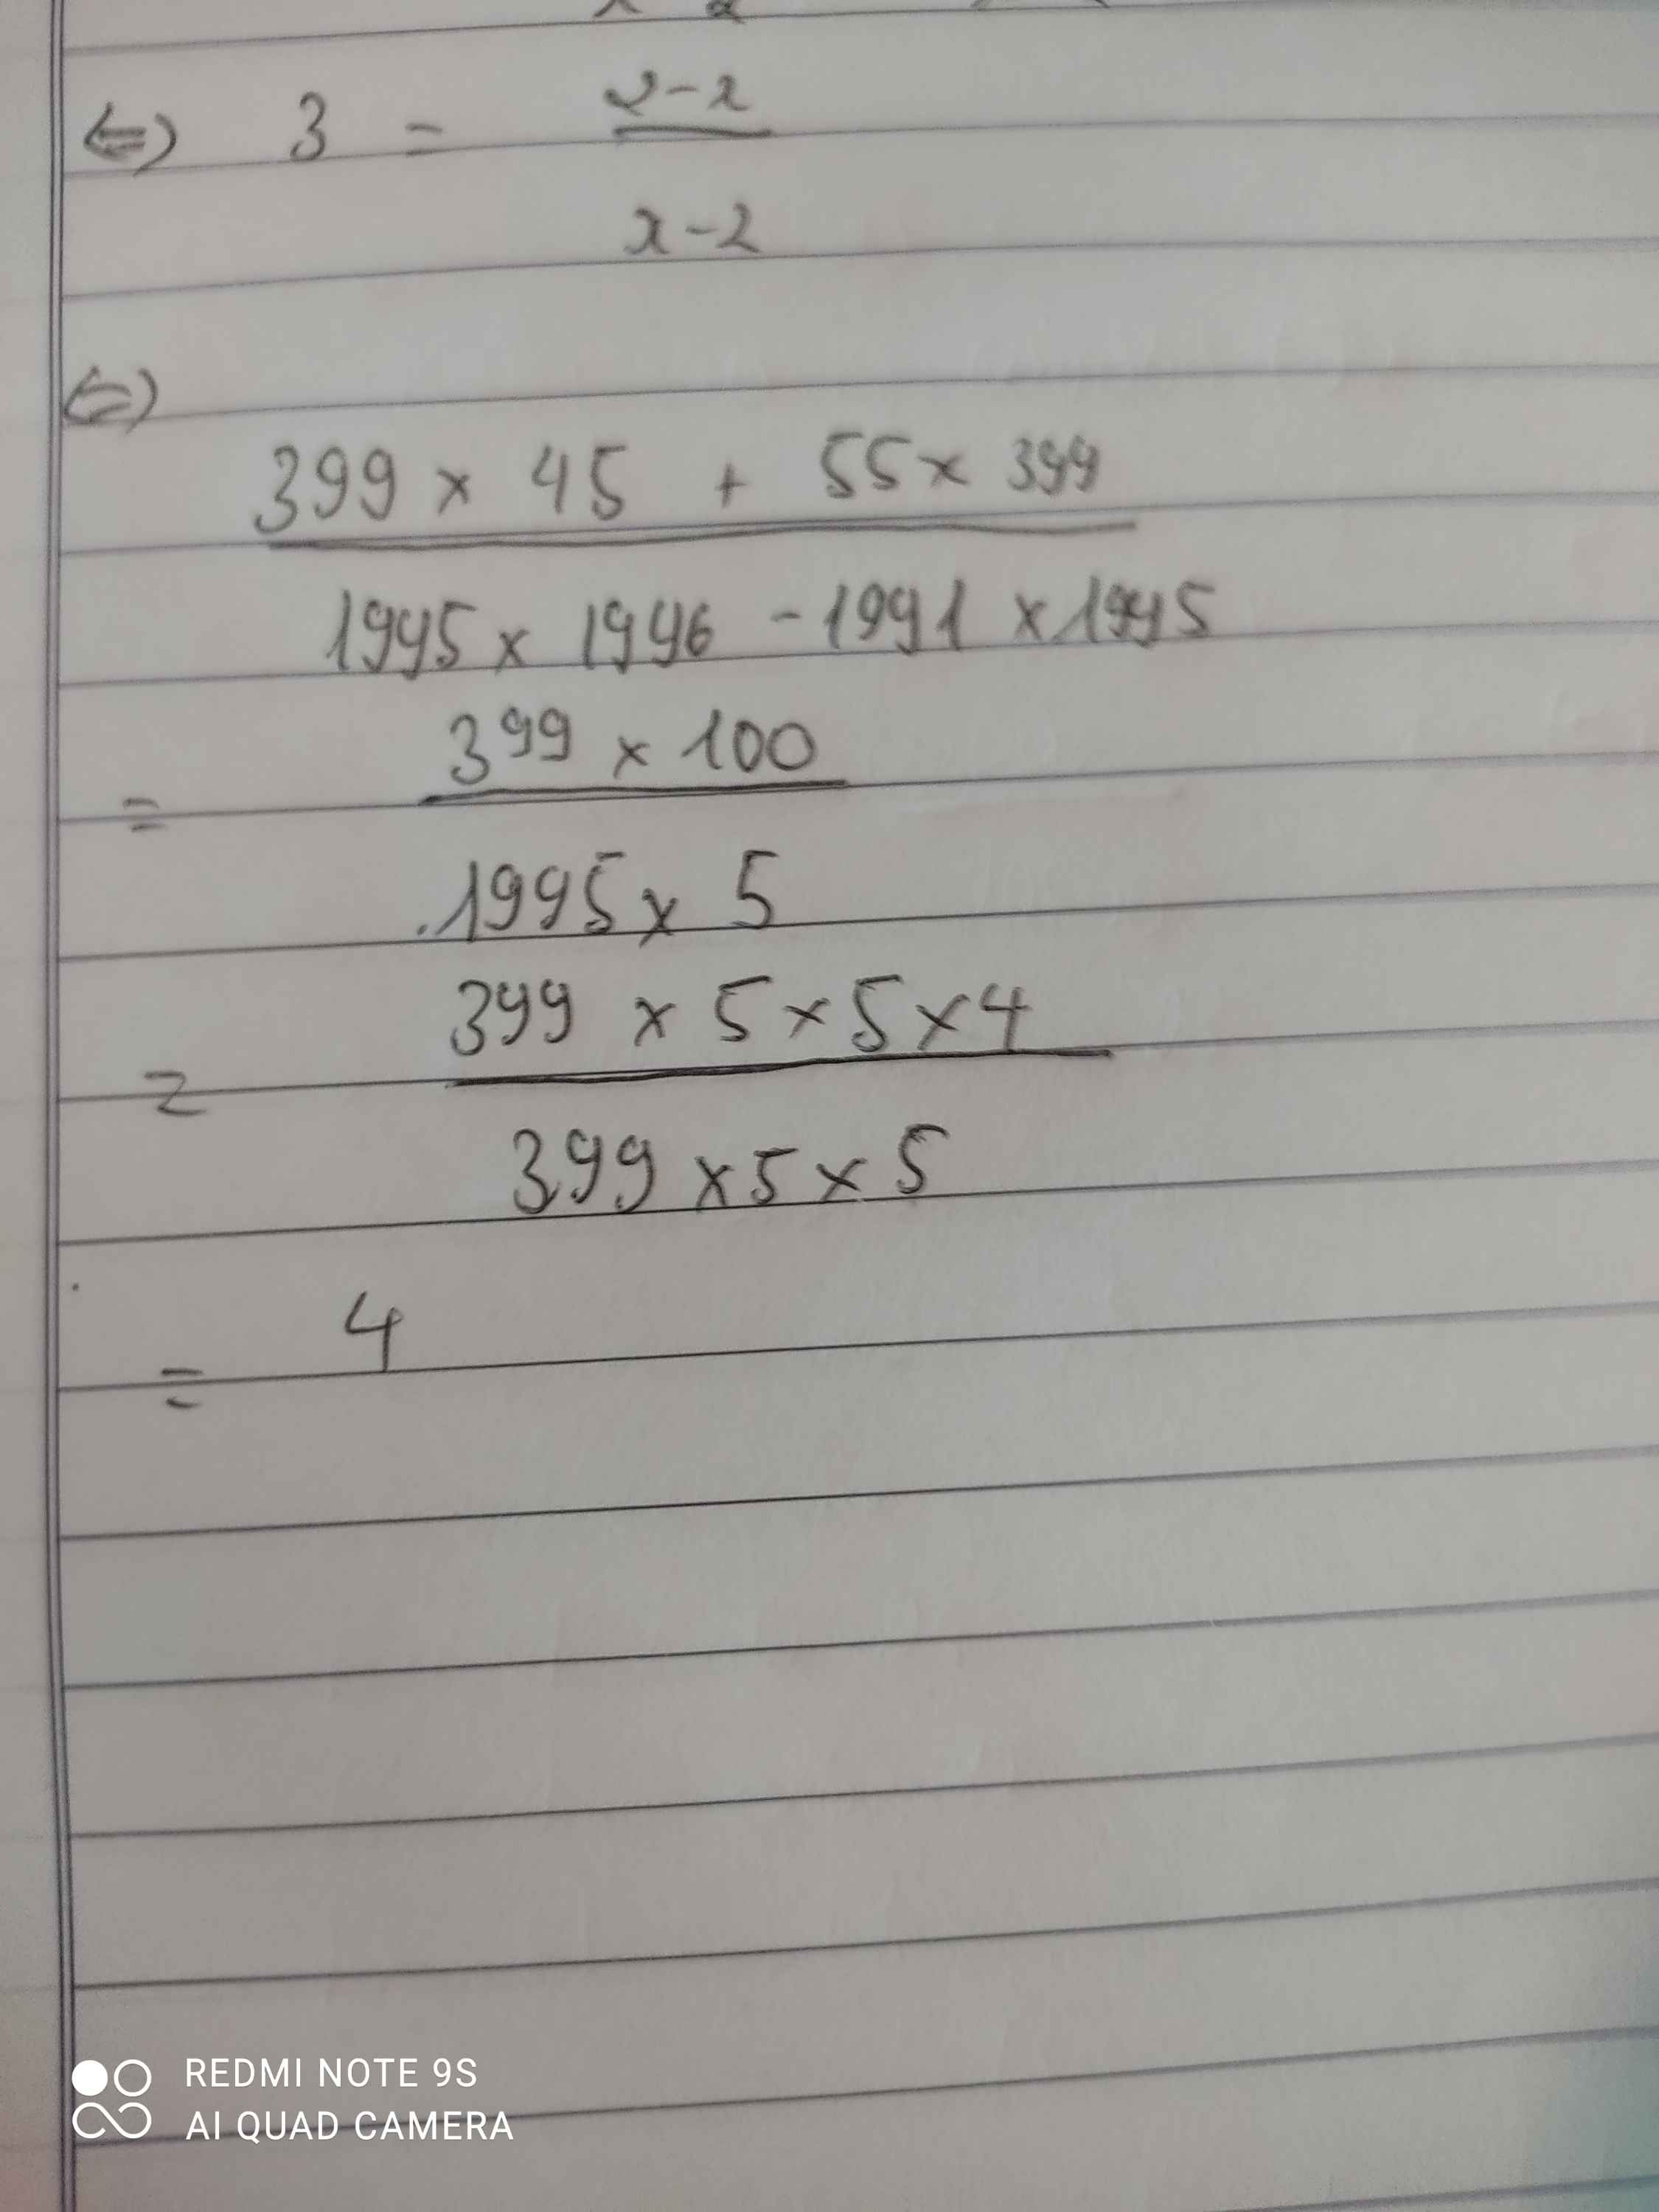 ⇔ 3 = 2-x
x-2
⇔
399 x 45 + 55 x 399
1995 x 1996 - 1991 x 1995
= 399 x 100
1995 x 5
= 399 x 5 x 5 x 4
399 x 5 x 5
= 4
REDMI NOTE 9S
AI QUAD CAMERA